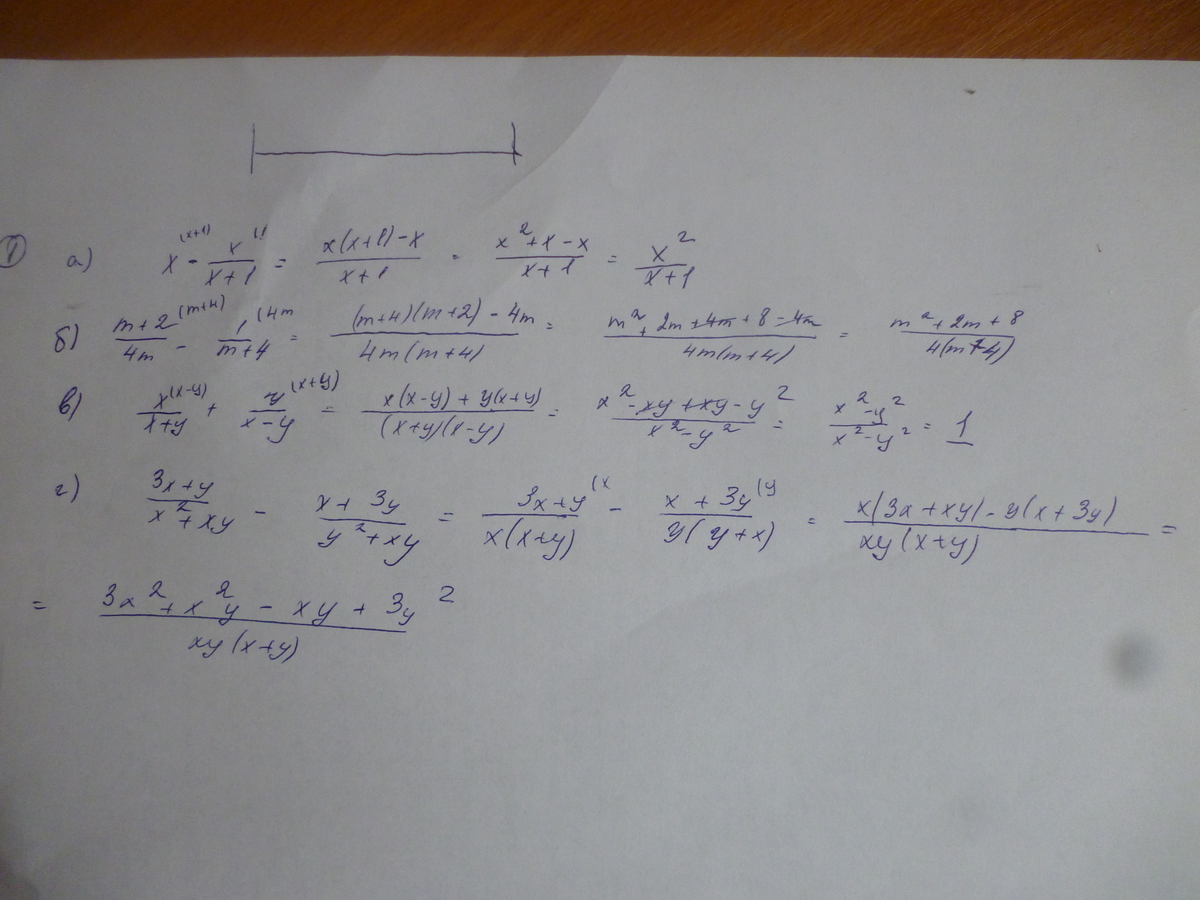 ① а) x^(x+1) - x/(x+1) ^(1 = (x(x+1)-x)/(x+1) = (x²+x-x)/(x+1) = x²/(x+1)
б) (m+2)/(4m) ^(m+4) - 1/(m+4) ^(4m = ((m+4)(m+2)-4m)/(4m(m+4)) = (m²+2m+4m+8-4m)/(4m(m+4)) = (m²+2m+8)/(4(m+4))
в) x/(x+y) ^(x-y) + y/(x-y) ^(x+y) = (x(x-y)+y(x+y))/((x+y)(x-y)) = (x²-xy+xy-y²)/(x²-y²) = (x²-y²)/(x²-y²) = 1
г) (3x+y)/(x²+xy) - (x+3y)/(y²+xy) = (3x+y)/(x(x+y)) ^(x - (x+3y)/(y(y+x)) ^(y = (x(3x+xy)-y(x+3y))/(xy(x+y)) =
= (3x²+x²y-xy+3y²)/(xy(x+y))